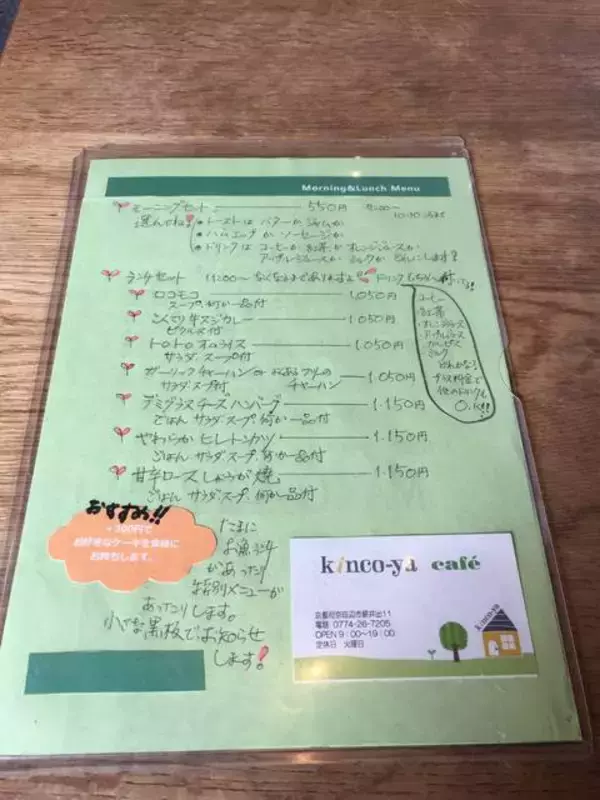 Morning&Lunch Menu
モーニングセット 550円
選んでね! ・トーストは バターか ジャムか
・ハムエッグ か ソーセージか
・ドリンクは コーヒーか 紅茶か オレンジジュースか
アップルジュースか ミルクか どれにします?
ランチセット 11:00〜 なくなるまでありますよ! ドリンク
ロコモコ 1,050円
スープ、何か一品付
こくてり牛スジカレー 1.050円
ピクルス付
トロトロ オムライス 1.050円
サラダ、スープ付
ガーリックチャーハン or チャーハン 1.050円
サラダ、スープ付
デミグラスチーズハンバーグ 1.150円
ごはん サラダ スープ 何か一品付
やわらか ヒレトンカツ 1.150円
ごはん サラダ スープ 何か一品付
甘辛ロースしょうが焼 1.150円
ごはん サラダ スープ、何か一品付
コーヒー
紅茶
オレンジジュース
アップルジュース
カルピス
ミルク
どれかな?
プラス料金で
他のドリンクも
O.K!!
おすすめ!!
+300円で
お好きなケーキを食後に
お持ちします。
たまに
お魚ランチ
があったり
特別メニューが
あったりします。
小さな黒板でお知らせ
します!
kinco-ya café
京都府京田辺市薪井出11
電話 0774-26-7205
OPEN 9:00〜19:00
定休日 火曜日
kinco-ya